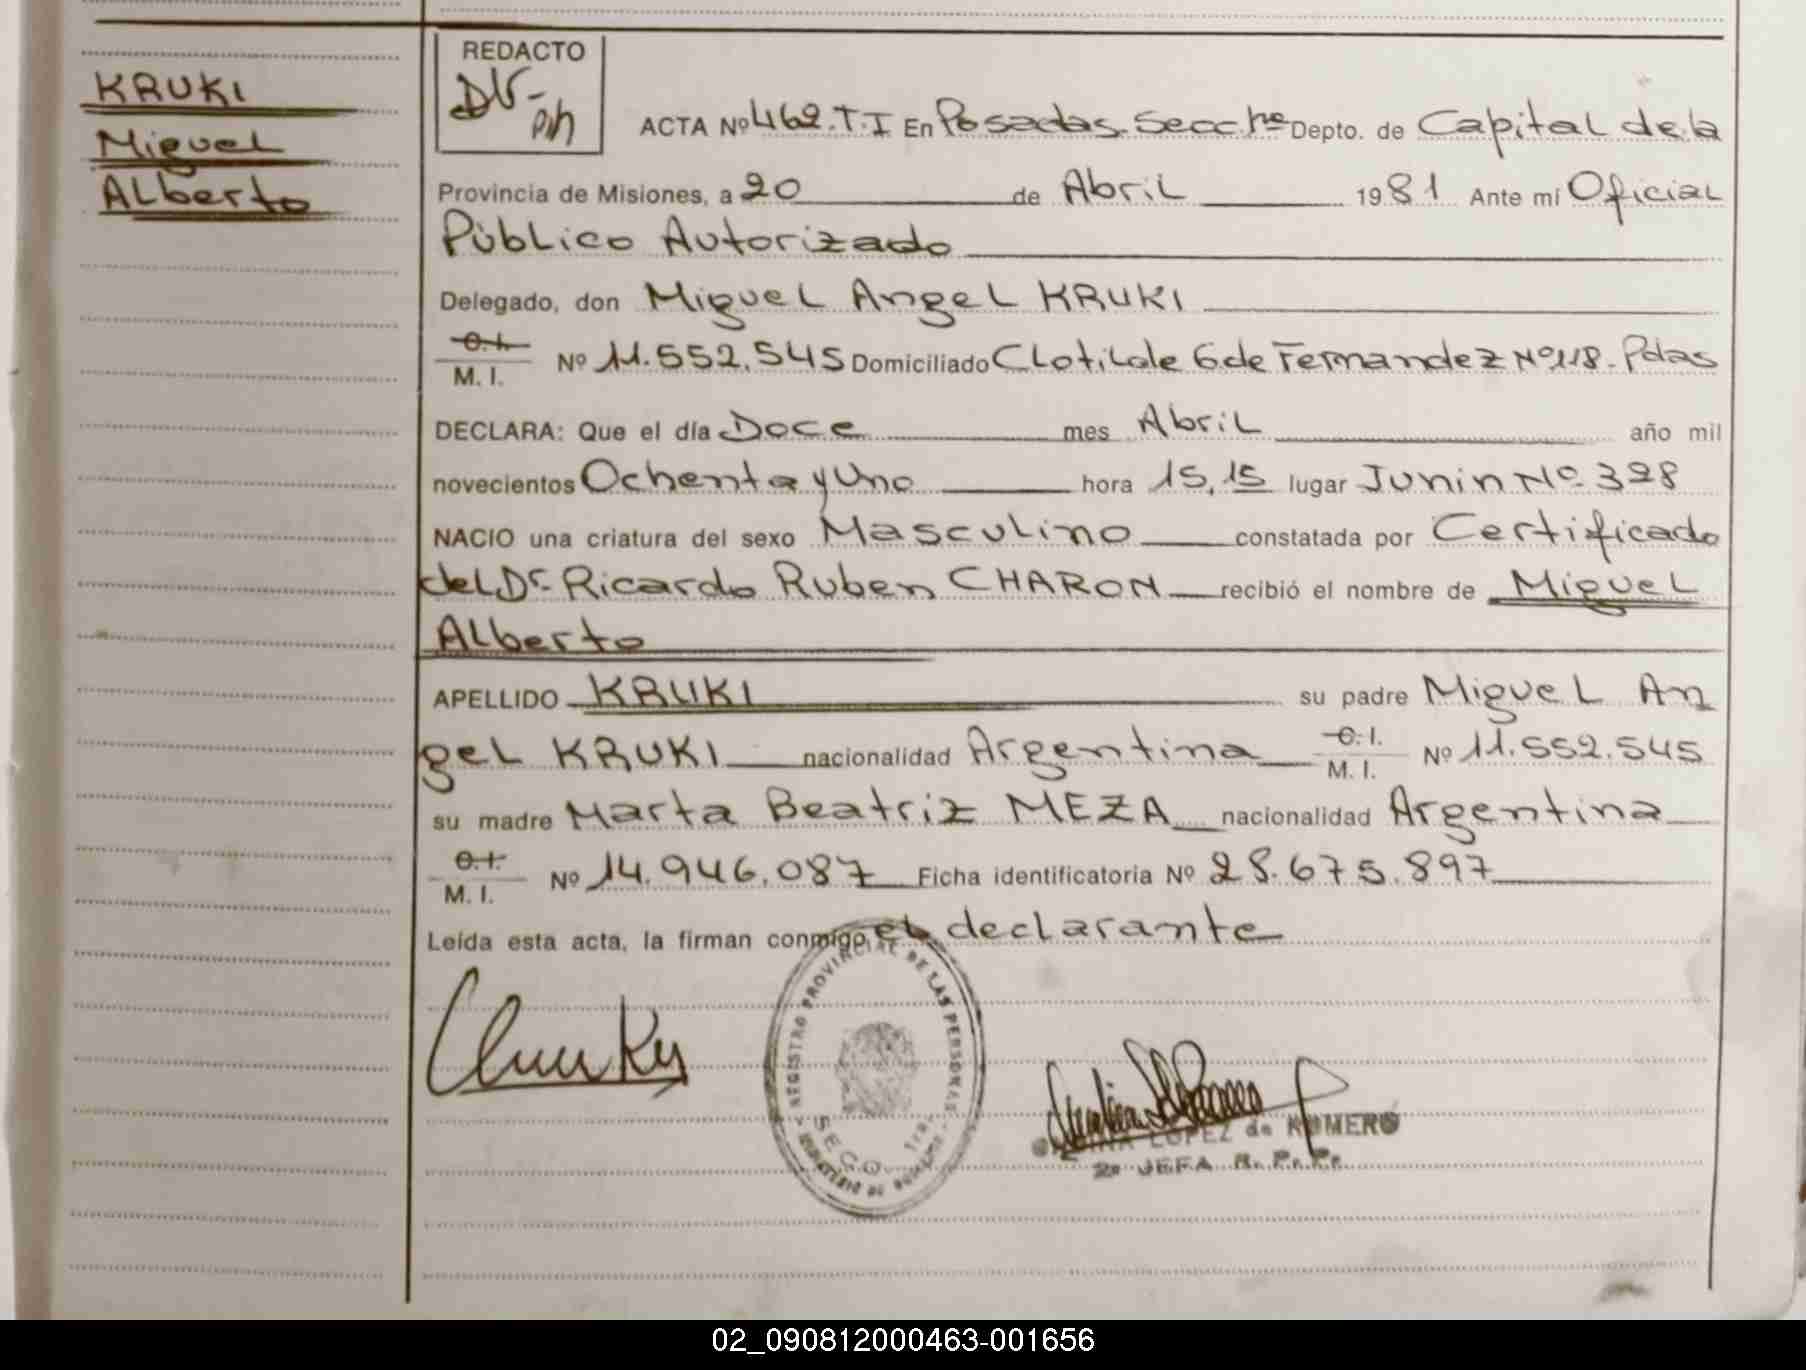 KRUKI
Miguel
Alberto
REDACTO
ACTA Nº 462. T. I En Posadas. Secc 1ra Depto. de Capital de la
Provincia de Misiones, a 20 de Abril 1981 Ante mí Oficial
Público Autorizado
Delegado, don Miguel Angel KRUKI
C.I. M. I. Nº 11.552.545 Domiciliado Clotilde G de Fernandez Nº 118. Pdas
DECLARA: Que el día Doce mes Abril año mil
novecientos Ochenta y Uno hora 15,15 lugar Junin Nº 328
NACIO una criatura del sexo Masculino constatada por Certificado
del Dr. Ricardo Ruben CHARON recibió el nombre de Miguel
Alberto
APELLIDO KRUKI su padre Miguel An
gel KRUKI nacionalidad Argentina C.I. M. I. Nº 11.552.545
su madre Marta Beatriz MEZA nacionalidad Argentina
C.I. M. I. Nº 14.946.087 Ficha identificatoria Nº 28.675.897
Leída esta acta, la firman conmigo el declarante
REGISTRO PROVINCIAL DE LAS PERSONAS
SECC. 1ra.
MINISTERIO DE GOBIERNO
LOPEZ de ROMERO
2a JEFA R. P. P.
02_090812000463-001656